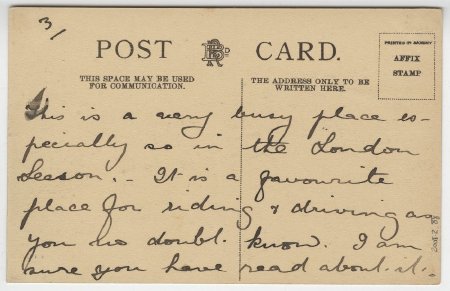 3/
POST CARD.
PRINTED IN SAXONY
AFFIX
STAMP
THIS SPACE MAY BE USED
FOR COMMUNICATION.
THE ADDRESS ONLY TO BE
WRITTEN HERE.
This is a very busy place es-
pecially so in the London
Season. - It is a favourite
place for riding & driving as
you no doubt know. I am
sure you have read about it. -